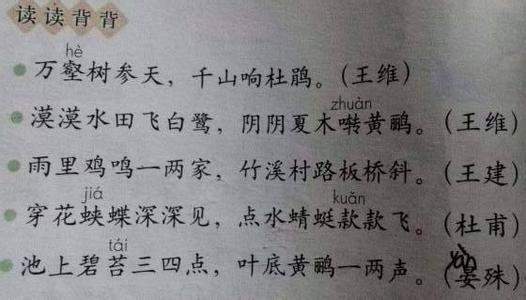 读读背背
hè
万壑树参天，千山响杜鹃。（王维）
zhuàn
漠漠水田飞白鹭，阴阴夏木啭黄鹂。（王维）
雨里鸡鸣一两家，竹溪村路板桥斜。（王建）
jiá kuǎn
穿花蛱蝶深深见，点水蜻蜓款款飞。（杜甫）
tái
池上碧苔三四点，叶底黄鹂一两声。（晏殊）